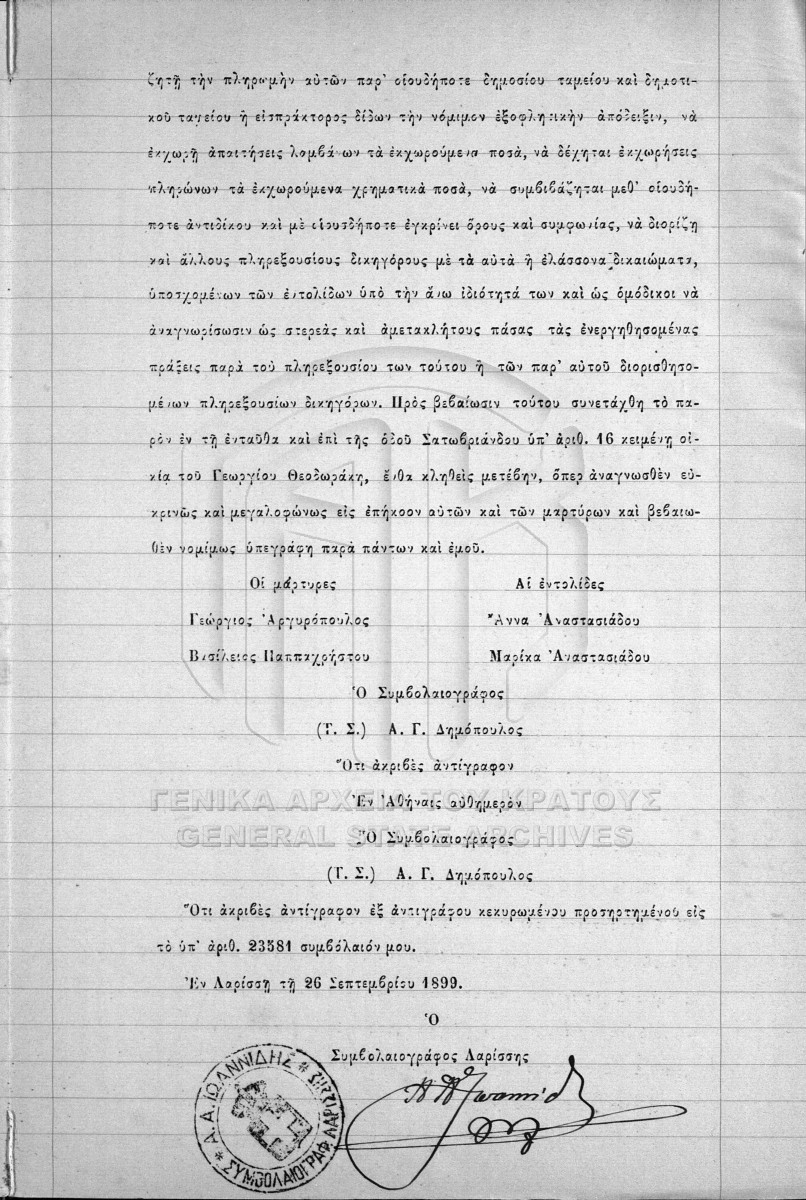 ζητῇ τὴν πληρωμὴν αὐτῶν παρ' οἱουδήποτε δημοσίου ταμείου καὶ δημοτι-
κοῦ ταμείου ἢ εἰσπράκτορος δίδων τὴν νόμιμον ἐξοφλητικὴν ἀπόδειξιν, νὰ
ἐκχωρῇ ἀπαιτήσεις λαμβάνων τὰ ἐκχωρούμενα ποσά, νὰ δέχηται ἐκχωρήσεις
πληρώνων τὰ ἐκχωρούμενα χρηματικὰ ποσά, νὰ συμβιβάζηται μεθ' οἱουδή-
ποτε ἀντιδίκου καὶ μὲ οἱουσδήποτε ἐγκρίνει ὅρους καὶ συμφωνίας, νὰ διορίζῃ
καὶ ἄλλους πληρεξουσίους δικηγόρους μὲ τὰ αὐτὰ ἢ ἐλάσσονα δικαιώματα,
ὑποσχομένων τῶν ἐντολίδων ὑπὸ τὴν ἄνω ἰδιότητά των καὶ ὡς ὁμόδικοι νὰ
ἀναγνωρίσωσιν ὡς στερεὰς καὶ ἀμετακλήτους πάσας τὰς ἐνεργηθησομένας
πράξεις παρὰ τοῦ πληρεξουσίου των τούτου ἢ τῶν παρ' αὐτοῦ διορισθησο-
μένων πληρεξουσίων δικηγόρων. Πρὸς βεβαίωσιν τούτου συνετάχθη τὸ πα-
ρὸν ἐν τῇ ἐνταῦθα καὶ ἐπὶ τῆς ὁδοῦ Σατωβριάνδου ὑπ' ἀριθ. 16 κειμένῃ οἰ-
κίᾳ τοῦ Γεωργίου Θεοδωράκη, ἔνθα κληθεὶς μετέβην, ὅπερ ἀναγνωσθὲν εὐ-
κρινῶς καὶ μεγαλοφώνως εἰς ἐπήκοον αὐτῶν καὶ τῶν μαρτύρων καὶ βεβαιω-
θὲν νομίμως ὑπεγράφη παρὰ πάντων καὶ ἐμοῦ.
Οἱ μάρτυρες Αἱ ἐντολίδες
Γεώργιος Ἀργυρόπουλος Ἄννα Ἀναστασιάδου
Βασίλειος Παππαχρήστου Μαρίκα Ἀναστασιάδου
Ὁ Συμβολαιογράφος
(Τ. Σ.) Α. Γ. Δημόπουλος
Ὅτι ἀκριβὲς ἀντίγραφον
Ἐν Ἀθήναις αὐθημερὸν
ΓΕΝΙΚΑ ΑΡΧΕΙΑ ΤΟΥ ΚΡΑΤΟΥΣ
GENERAL STATE ARCHIVES
Ὁ Συμβολαιογράφος
(Τ. Σ.) Α. Γ. Δημόπουλος
Ὅτι ἀκριβὲς ἀντίγραφον ἐξ ἀντιγράφου κεκυρωμένου προσηρτημένου εἰς
τὸ ὑπ' ἀριθ. 23581 συμβόλαιόν μου.
Ἐν Λαρίσσῃ τῇ 26 Σεπτεμβρίου 1899.
Ὁ
Συμβολαιογράφος Λαρίσσης
Α. Α. ΙΩΑΝΝΙΔΗΣ * ΣΥΜΒΟΛΑΙΟΓΡΑΦ